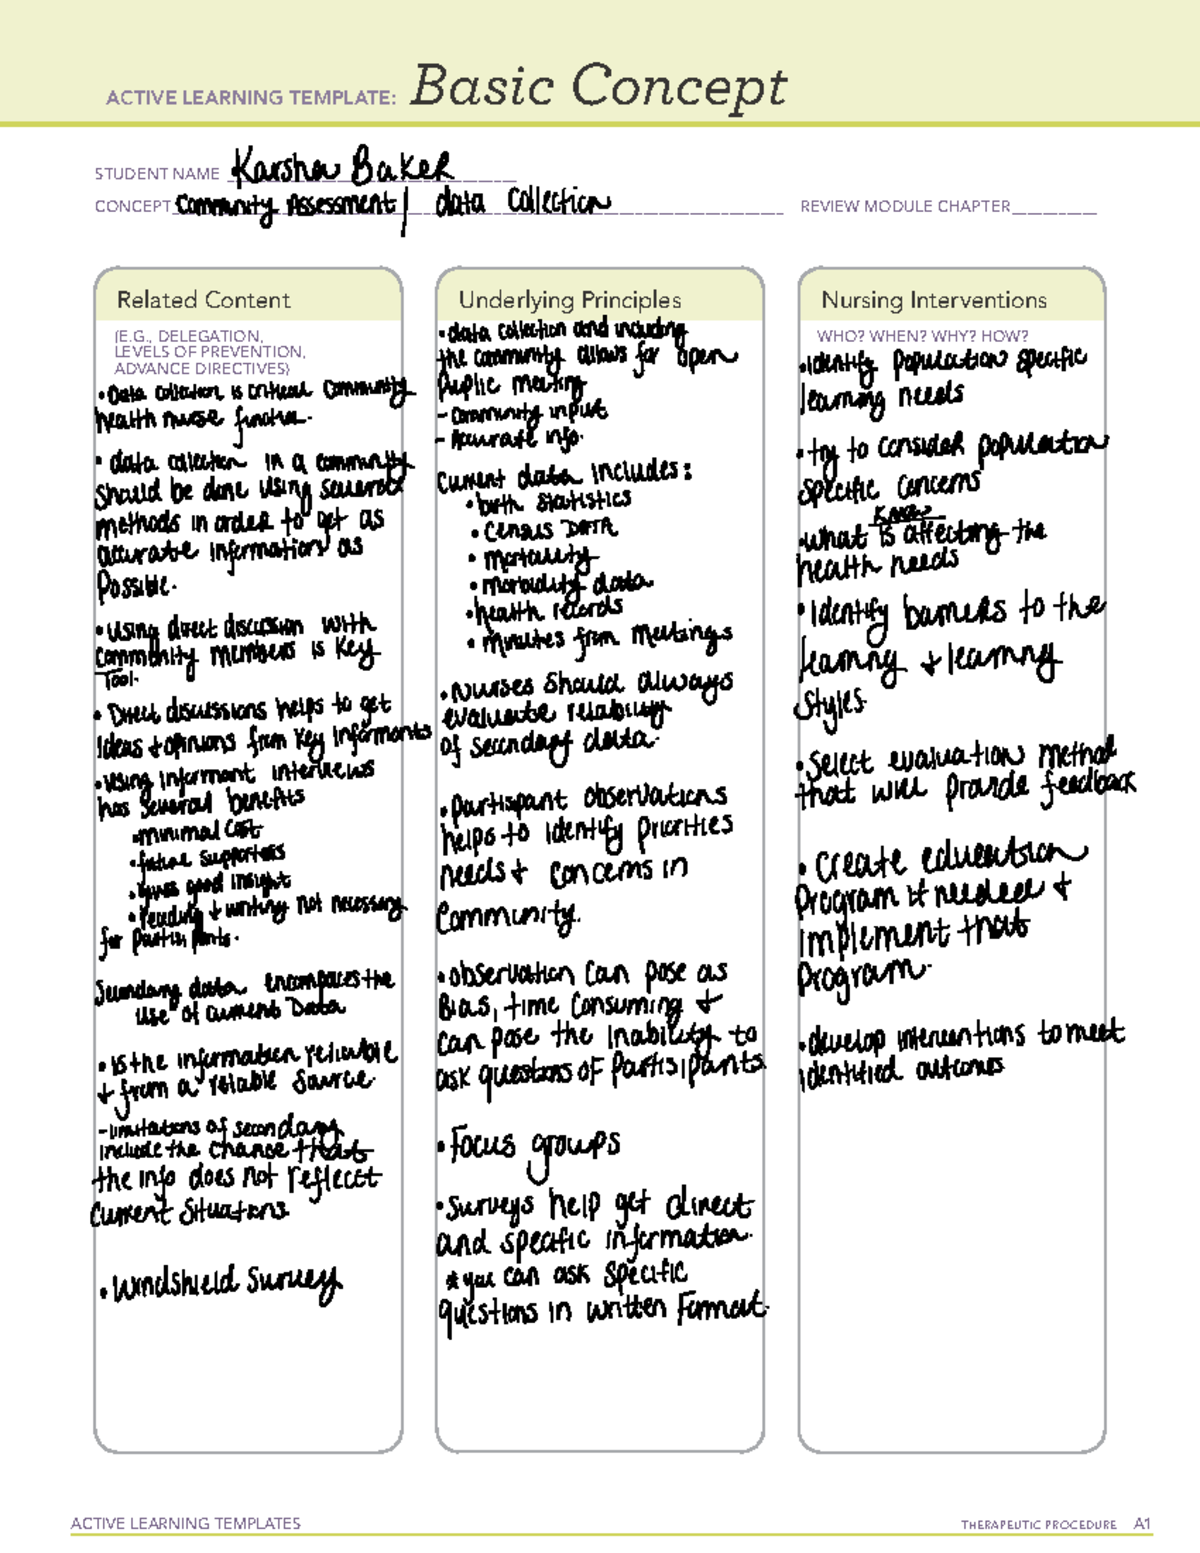 ACTIVE LEARNING TEMPLATE: Basic Concept
STUDENT NAME Karsha Baker
CONCEPT Community Assessment / data Collection REVIEW MODULE CHAPTER
Related Content
(E.G., DELEGATION,
LEVELS OF PREVENTION,
ADVANCE DIRECTIVES)
• Data collection is critical community
health nurse function.
• data collection in a community
should be done using several
methods in order to get as
accurate information as
Possible.
• Using direct discussion with
community members is key
Tool.
• Direct discussions helps to get
ideas + opinions from key informants
• using informant interviews
has several benefits
• minimal cost
• future supporters
• gives good insight
• reading + writing not necessary
for participants.
Secondary data encompaces the
use of current Data
• is the information reliable
+ from a reliable source.
- limitations of secondary
include the chance that
the info does not reflect
current situations.
• Windshield survey
Underlying Principles
• data collection and including
the community allows for open
Public meeting
- community input
- Accurate info.
Current data includes:
• birth statistics
• Census DATA
• mortality
• morbidity data
• health records
• minutes from meetings
• Nurses should always
evaluate reliability
of secondary data.
• partispant observations
helps to identify priorities
needs + concerns in
Community.
• observation can pose as
Bias, time consuming +
can pose the inability to
ask questions of Partisipants
• Focus groups
• Surveys help get direct
and specific information.
* you can ask specific
questions in written format.
Nursing Interventions
WHO? WHEN? WHY? HOW?
• Identify population specific
learning needs
• try to consider population
specific concerns
Know
• what is affecting the
health needs
• Identify barriers to the
learning + learning
Styles.
• Select evaluation method
that will provide feedback
• create education
Program if needed +
implement that
program.
• develop interventions to meet
identified outcomes
ACTIVE LEARNING TEMPLATES
THERAPEUTIC PROCEDURE A1